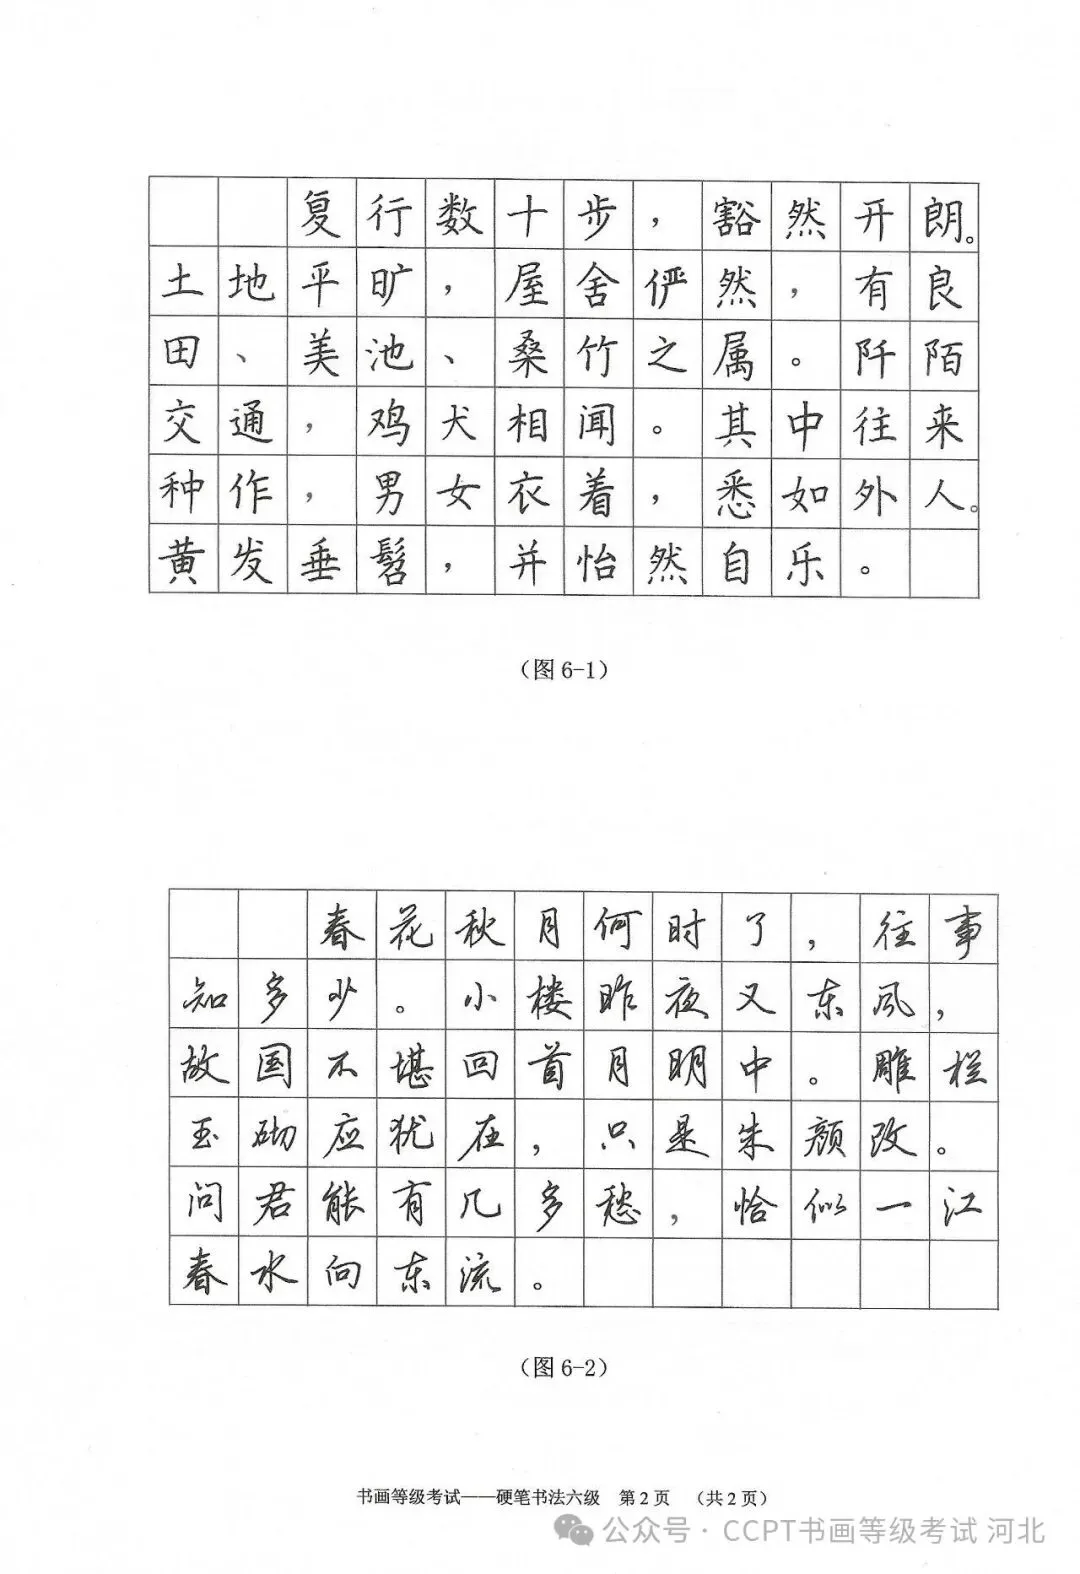 复行数十步，豁然开朗。
土地平旷，屋舍俨然，有良
田、美池、桑竹之属。阡陌
交通，鸡犬相闻。其中往来
种作，男女衣着，悉如外人。
黄发垂髫，并怡然自乐。
（图6-1）
春花秋月何时了，往事
知多少。小楼昨夜又东风，
故国不堪回首月明中。雕栏
玉砌应犹在，只是朱颜改。
问君能有几多愁，恰似一江
春水向东流。
（图6-2）
书画等级考试——硬笔书法六级 第2页 （共2页）
公众号·CCPT书画等级考试 河北